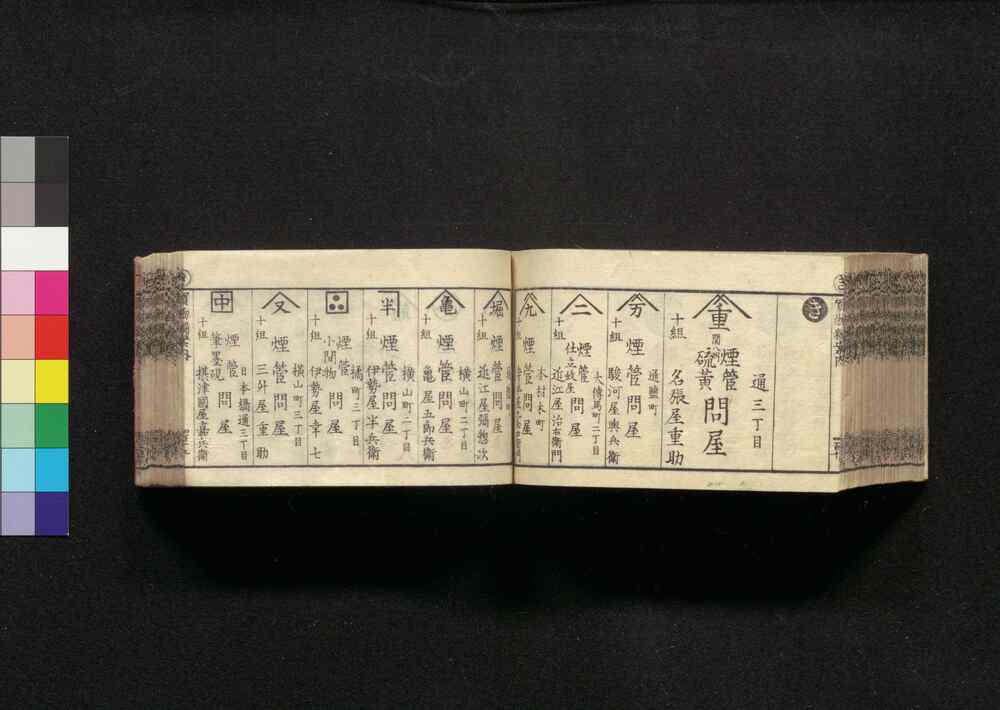 き
通三丁目
重
煙管
硫黄
問屋
十組
名張屋重助
通鹽町
万
煙管問屋
十組
駿河屋與兵衛
大傳馬町二丁目
二
煙管
問屋
十組
近江屋治右衛門
本材木町
九
煙管問屋
十組
堀
煙管問屋
十組
近江屋彌惣次
横山町二丁目
亀
煙管問屋
十組
亀屋五郎兵衛
横山町一丁目
半
煙管問屋
十組
伊勢屋半兵衛
橘町三丁目
煙管
小間物
問屋
十組
伊勢屋幸七
横山町三丁目
又
煙管問屋
十組
三外屋重助
日本橋通三丁目
中
煙管
筆墨硯
問屋
十組
摂津國屋嘉兵衛